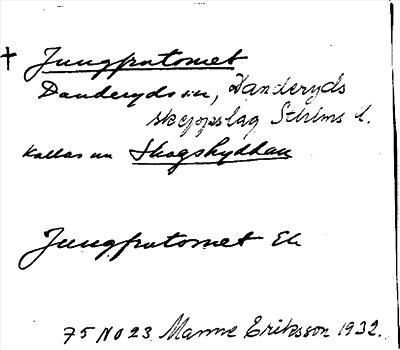 † Jungfrutornet
Danderyds sn, Danderyds
skeppslag Sthlms l.
Kallas nu Skogshyddan
Jungfrutornet Ek
75 NO 23 Manne Eriksson 1932.